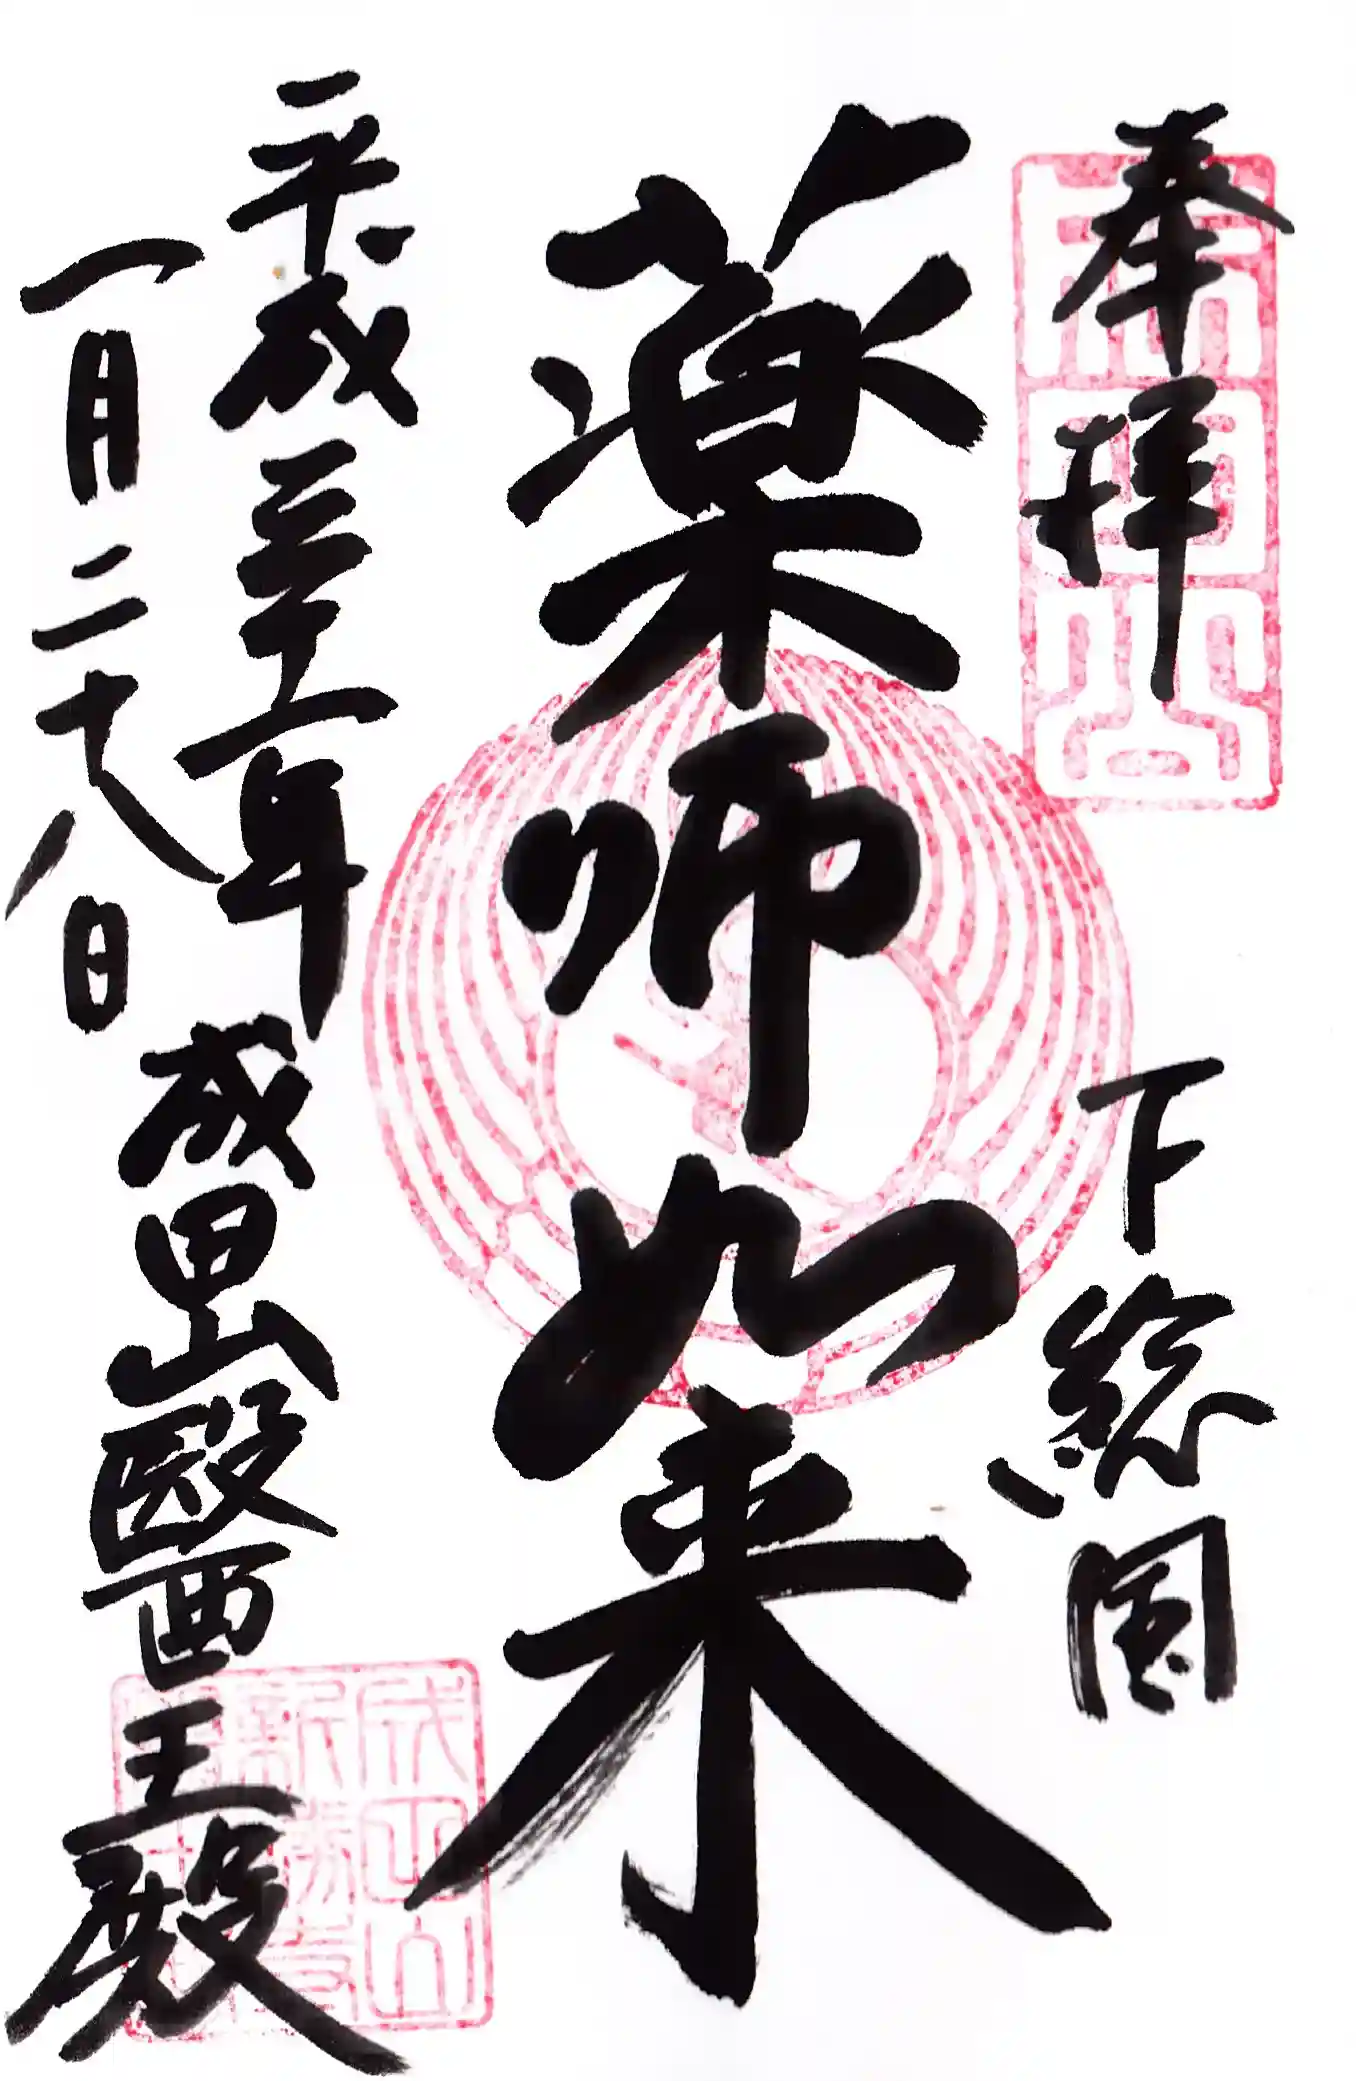 奉拝
下総国
薬師如来
平成三十一年
一月二十八日
成田山醫王殿
成田山
新勝寺